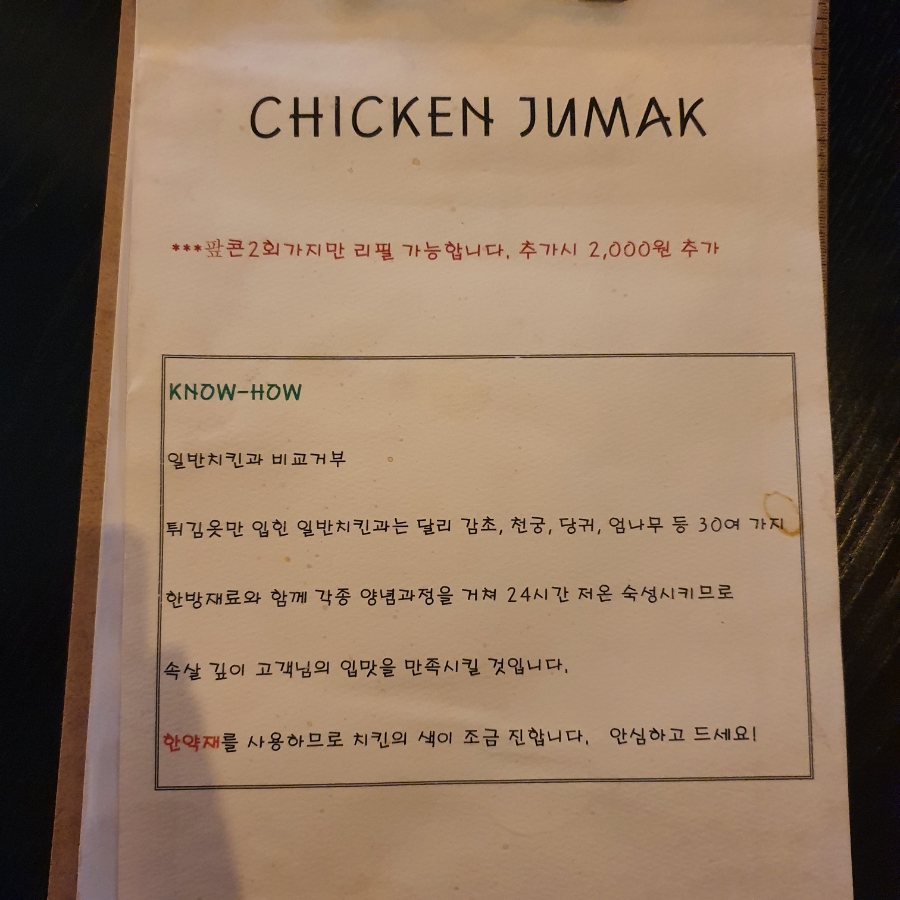 CHICKEN JUMAK
***팝콘2회가지만 리필 가능합니다. 추가시 2,000원 추가
KNOW-HOW
일반치킨과 비교거부
튀김옷만 입힌 일반치킨과는 달리 감초, 천궁, 당귀, 엄나무 등 30여 가지
한방재료와 함께 각종 양념과정을 거쳐 24시간 저온 숙성시키므로
속살 깊이 고객님의 입맛을 만족시킬 것입니다.
한약재를 사용하므로 치킨의 색이 조금 진합니다. 안심하고 드세요!